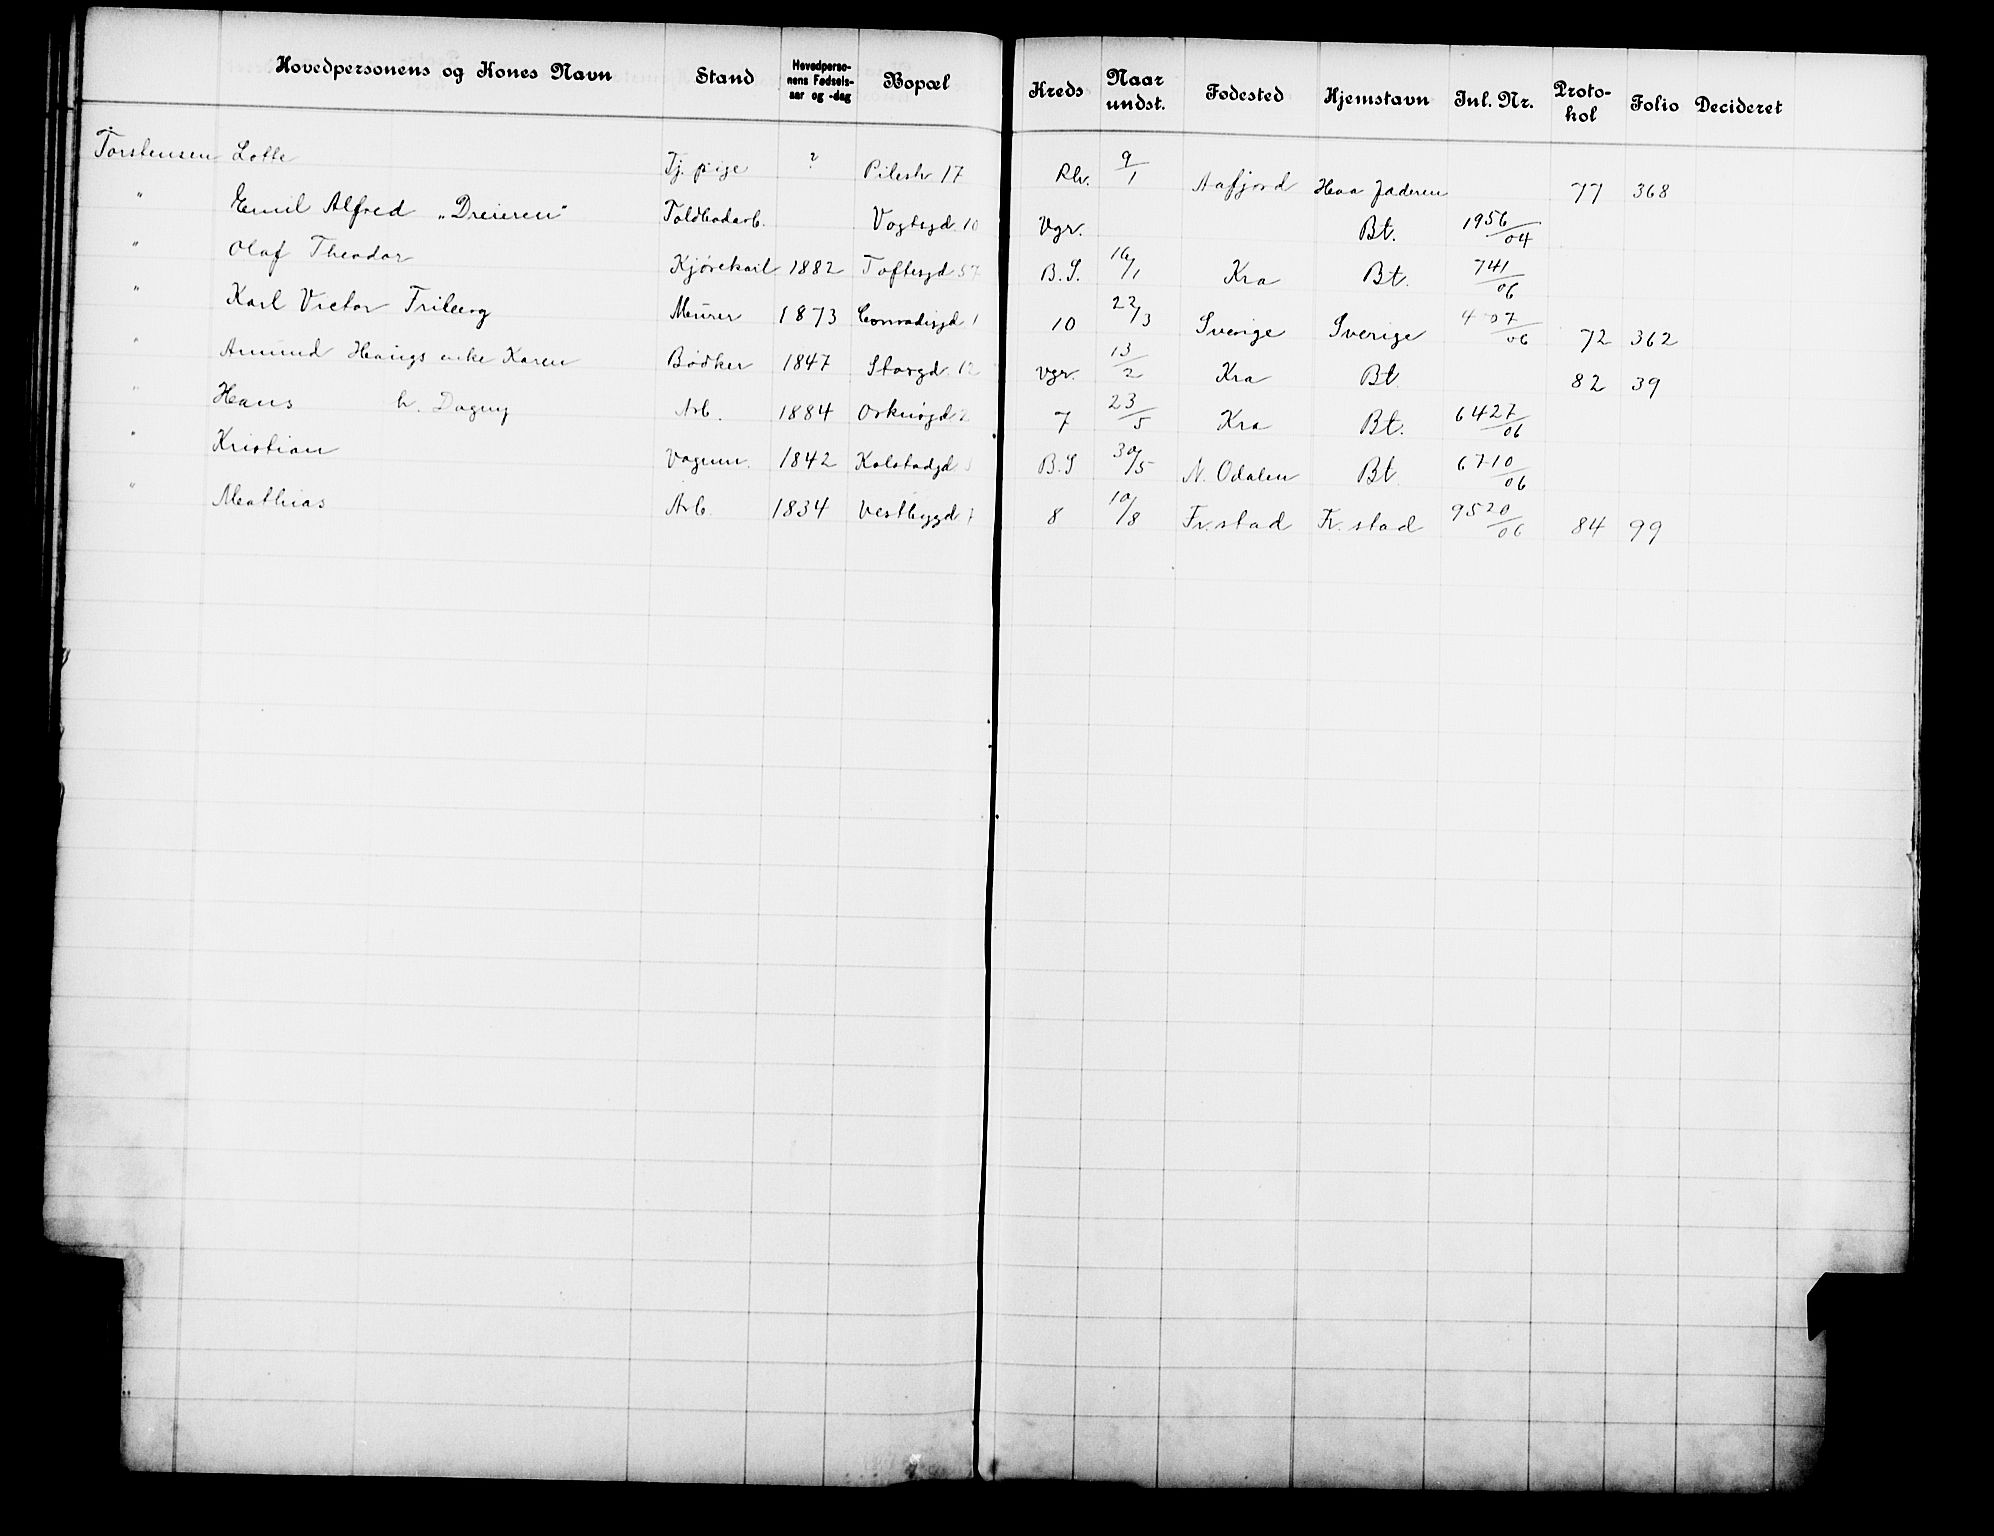 Hovedpersonens og Kones Navn Stand Hovedperso-nens Fødsels-aar og -dag Bopæl Kreds Naar undst. Fødested Hjemstavn Jnl. Nr. Proto-kol Folio Decideret
Torstensen Lotte Tj. pige ? Pilestr 17 Rh. 9/1 Aafjord Haa Jæderen 77 368
" Emil Alfred „Dreieren" Toldbodarb. Vogtsgd. 10 Vgr. Bt. 1956/04
" Olaf Theodor Kjørekarl 1882 Toftesgd 57 B. S. 16/1 Kra Bt. 741/06
" Karl Victor Friberg Murer 1873 Conradisgd 1 10 22/3 Sverige Sverige 4407/06 72 362
" Amund Haugs enke Karen Bødker 1847 Storgd. 12 Vgr. 13/2 Kra Bt 82 39
" Hans h. Dagny Arb. 1884 Orknøgd 2 7 23/5 Kra Bt. 6427/06
" Kristian Vognm. 1842 Kolstadgd B. S 30/5 N. Odalen Bt 6710/06
" Mathias Arb. 1834 Vestbygd 7 8 10/8 Fr. stad Fr. stad 9520/06 84 99